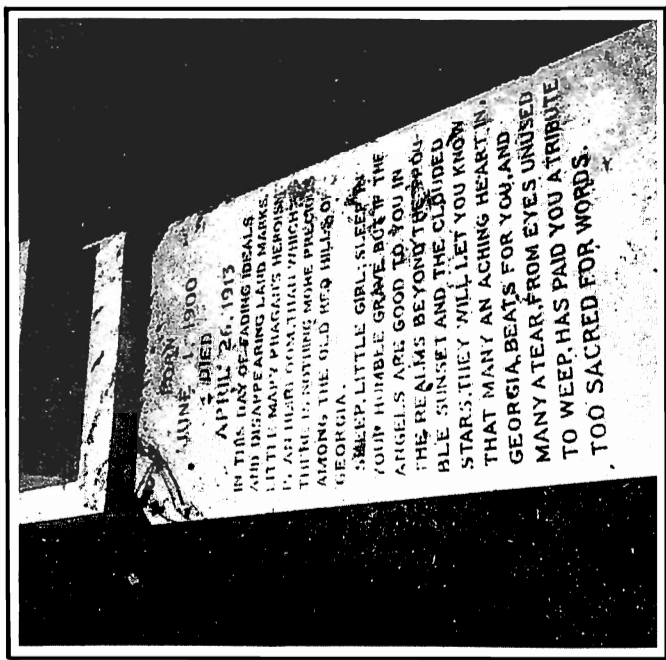 BORN
JUNE 1, 1900
DIED
APRIL 26, 1913
IN THIS DAY OF FADING IDEALS
AND DISAPPEARING LAND MARKS,
LITTLE MARY PHAGAN'S HEROISM
IS AN HEIRLOOM, THAN WHICH
THERE IS NOTHING MORE PRECIOUS
AMONG THE OLD RED HILLS OF
GEORGIA.
SLEEP, LITTLE GIRL; SLEEP IN
YOUR HUMBLE GRAVE BUT IF THE
ANGELS ARE GOOD TO YOU IN
THE REALMS BEYOND THE TROU-
BLE SUNSET AND THE CLOUDED
STARS, THEY WILL LET YOU KNOW
THAT MANY AN ACHING HEART IN
GEORGIA, BEATS FOR YOU, AND
MANY A TEAR, FROM EYES UNUSED
TO WEEP, HAS PAID YOU A TRIBUTE
TOO SACRED FOR WORDS.